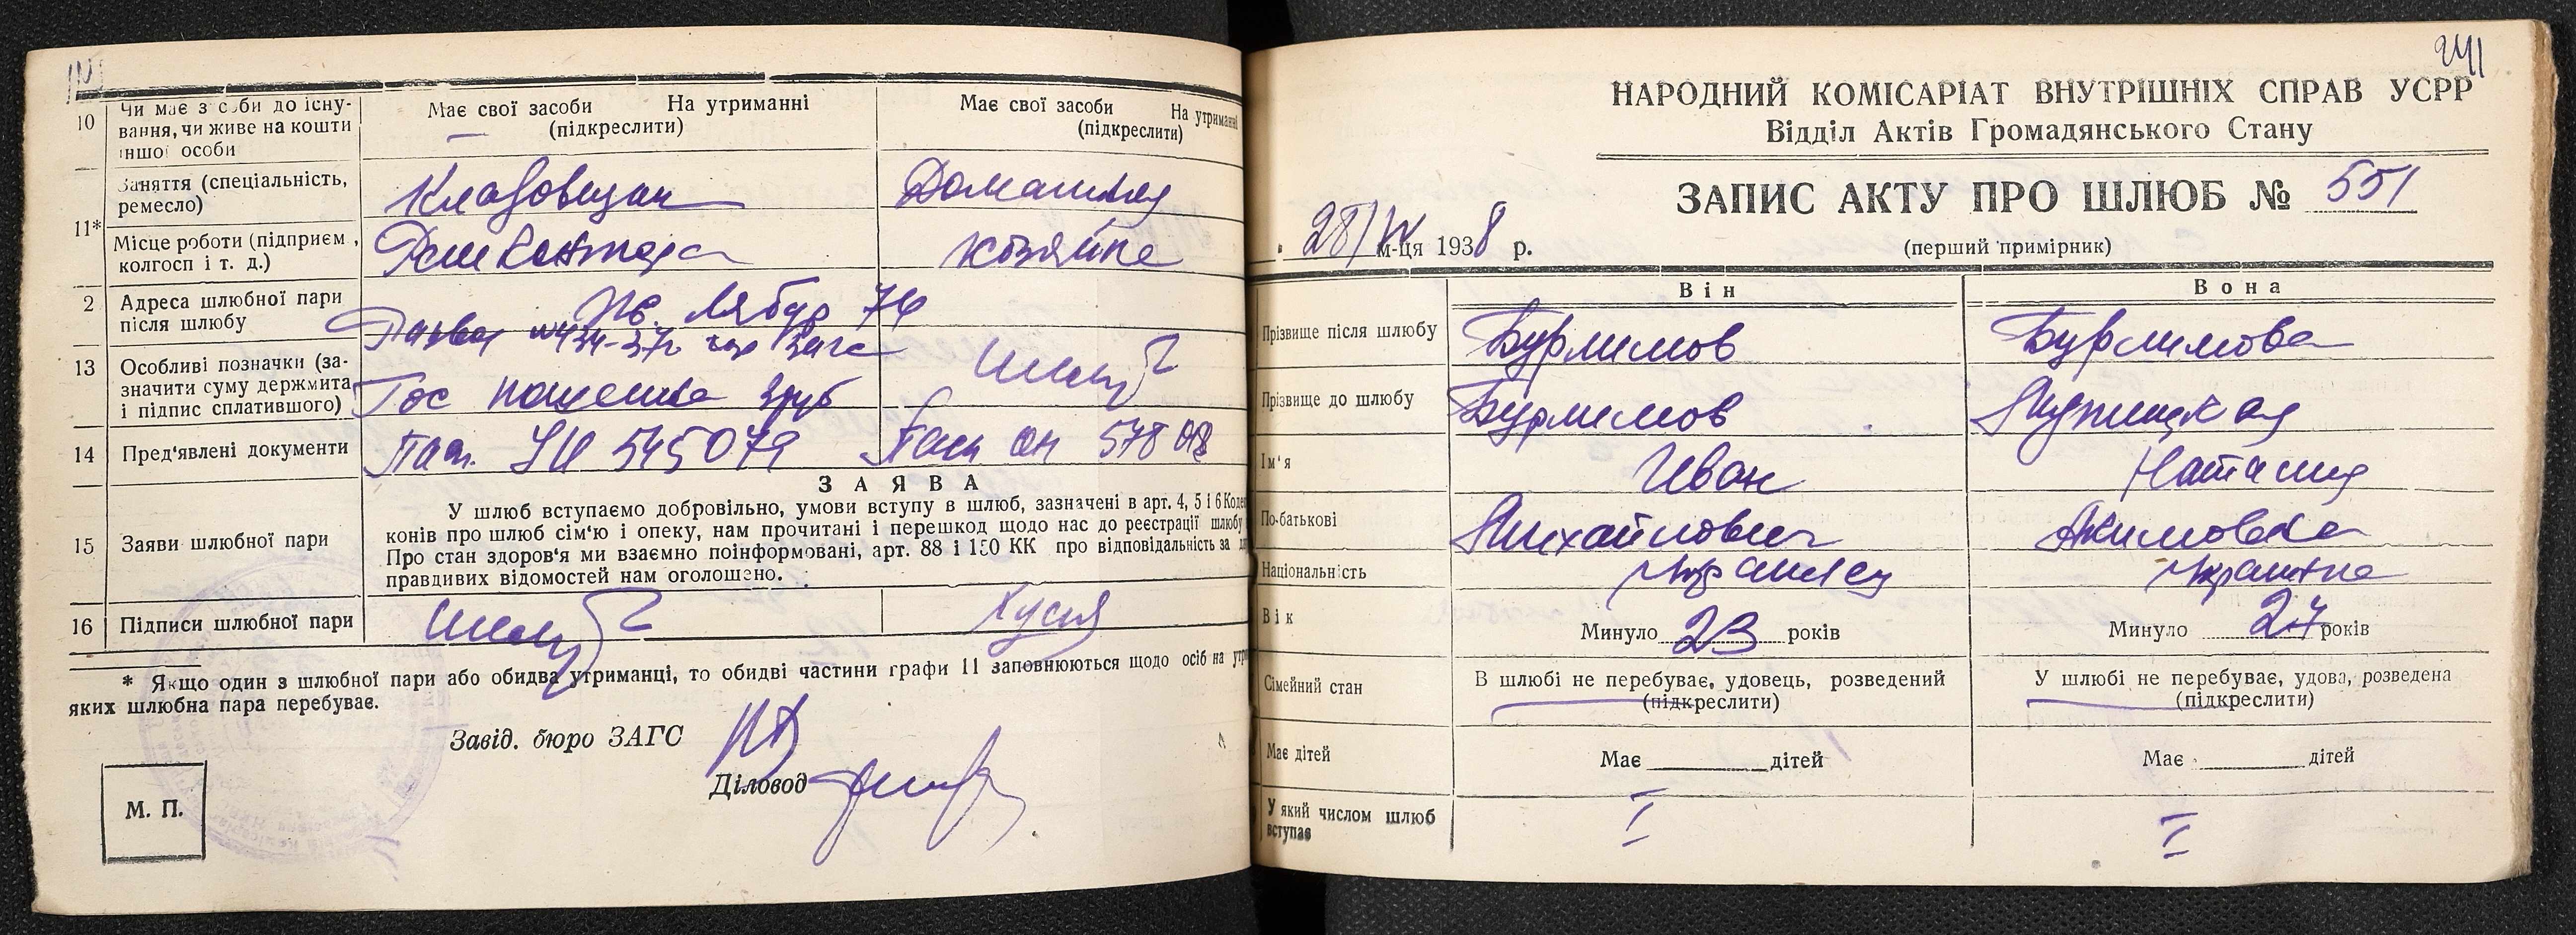 10
Чи має засоби до існу-
вання, чи живе на кошти
іншої особи
Має свої засоби На утриманні
(підкреслити)
Має свої засоби На утриманні
(підкреслити)
11*
Заняття (спеціальність,
ремесло)
Кладовщик
Домашняя
Місце роботи (підприєм.,
колгосп і т. д.)
хозяйка
2
Адреса шлюбної пари
після шлюбу
76
13
Особливі позначки (за-
значити суму держмита
і підпис сплатившого)
Гос пошлина 3 руб
14
Пред'явлені документи
545079
578
ЗАЯВА
15
Заяви шлюбної пари
У шлюб вступаємо добровільно, умови вступу в шлюб, зазначені в арт. 4, 5 і 6
конів про шлюб сім'ю і опеку, нам прочитані і перешкод щодо нас до реєстрації шлюбу
Про стан здоров'я ми взаємно поінформовані, арт. 88 і 150 КК про відповідальність за
правдивих відомостей нам оголошено.
16
Підписи шлюбної пари
* Якщо один з шлюбної пари або обидва утриманці, то обидві частини графи 11 заповнюються щодо осіб на
яких шлюбна пара перебуває.
Завід. бюро ЗАГС
Діловод
М. П.
241
НАРОДНИЙ КОМІСАРІАТ ВНУТРІШНІХ СПРАВ УСРР
Відділ Актів Громадянського Стану
ЗАПИС АКТУ ПРО ШЛЮБ № 551
28/ м-ця 1938 р.
(перший примірник)
Він
Вона
Прізвище після шлюбу
Бурлимов
Бурлимова
Прізвище до шлюбу
Бурлимов
Ім'я
Иван
Наталия
По-батькові
Михайлович
Акимовна
Національність
Украинец
Украинка
Вік
Минуло 23 років
Минуло 27 років
Сімейний стан
В шлюбі не перебуває, удовець, розведений
(підкреслити)
У шлюбі не перебуває, удова, розведена
(підкреслити)
Має дітей
Має дітей
Має дітей
У який числом шлюб
вступає
I
I